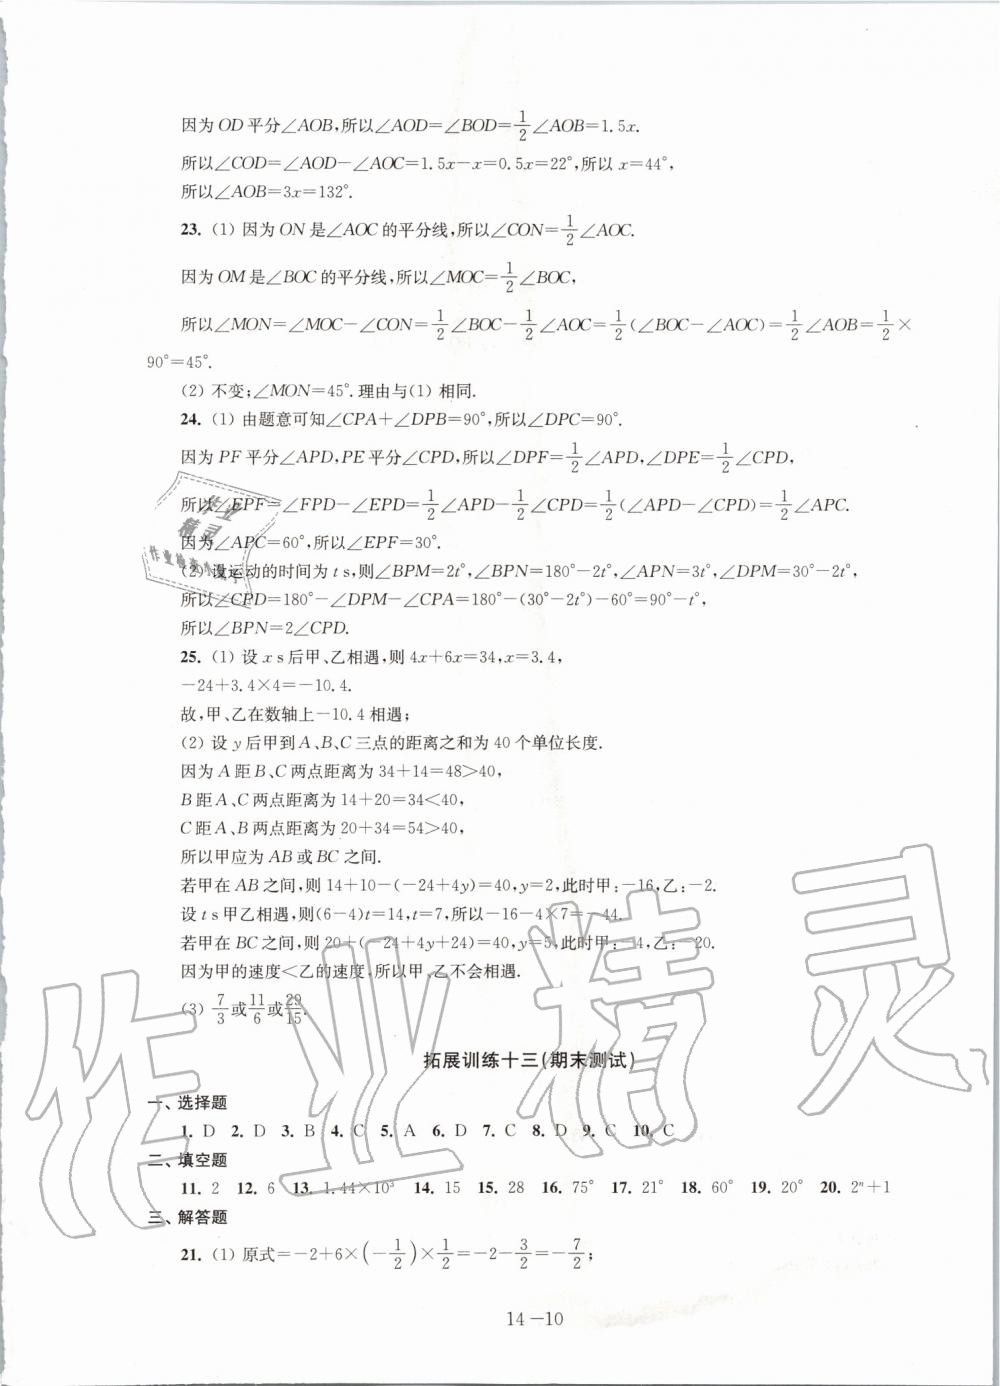 因为OD平分∠AOB,所以∠AOD=∠BOD=1/2∠AOB=1.5x.
所以∠COD=∠AOD-∠AOC=1.5x-x=0.5x=22°,所以x=44°,
所以∠AOB=3x=132°.
23. (1) 因为ON是∠AOC的平分线,所以∠CON=1/2∠AOC.
因为OM是∠BOC的平分线,所以∠MOC=1/2∠BOC,
所以∠MON=∠MOC-∠CON=1/2∠BOC-1/2∠AOC=1/2(∠BOC-∠AOC)=1/2∠AOB=1/2×
90°=45°.
(2) 不变;∠MON=45°.理由与(1)相同.
24. (1) 由题意可知∠CPA+∠DPB=90°,所以∠DPC=90°.
因为PF平分∠APD,PE平分∠CPD,所以∠DPF=1/2∠APD,∠DPE=1/2∠CPD,
所以∠EPF=∠FPD-∠EPD=1/2∠APD-1/2∠CPD=1/2(∠APD-∠CPD)=1/2∠APC.
因为∠APC=60°,所以∠EPF=30°.
(2) 设运动的时间为t s,则∠BPM=2t°,∠BPN=180°-2t°,∠APN=3t°,∠DPM=30°-2t°,
所以∠CPD=180°-∠DPM-∠CPA=180°-(30°-2t°)-60°=90°-t°,
所以∠BPN=2∠CPD.
25. (1) 设x s后甲、乙相遇,则4x+6x=34,x=3.4,
-24+3.4×4=-10.4.
故,甲、乙在数轴上-10.4相遇;
(2) 设y后甲到A、B、C三点的距离之和为40个单位长度.
因为A距B、C两点距离为34+14=48>40,
B距A、C两点距离为14+20=34<40,
C距A、B两点距离为20+34=54>40,
所以甲应为AB或BC之间.
若甲在AB之间,则14+10-(-24+4y)=40,y=2,此时甲:-16,乙:-2.
设t s甲乙相遇,则(6-4)t=14,t=7,所以-16-4×7=-44.
若甲在BC之间,则20+(-24+4y+24)=40,y=5,此时甲:-4,乙:-20.
因为甲的速度<乙的速度,所以甲、乙不会相遇.
(3) 7/3或11/6或29/15.
拓展训练十三(期末测试)
一、选择题
1. D 2. D 3. B 4. C 5. A 6. D 7. C 8. D 9. C 10. C
二、填空题
11. 2 12. 6 13. 1.44×10³ 14. 15 15. 28 16. 75° 17. 21° 18. 60° 19. 20° 20. 2ⁿ+1
三、解答题
21. (1) 原式=-2+6×(-1/2)×1/2=-2-3/2=-7/2;
14-10
作业
精灵
作业精灵